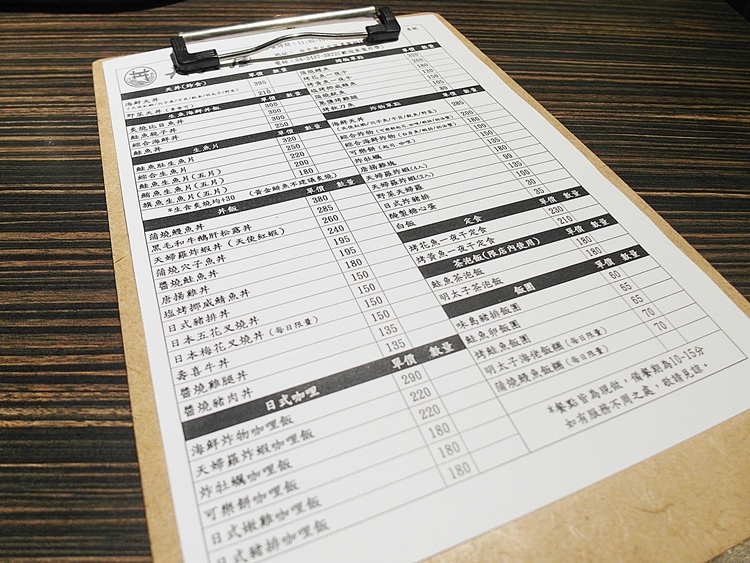 天丼(炸食) 單價 數量
海鮮天丼 305
野菜天丼(素食可) 210
生魚海鮮丼飯 單價 數量
炙燒比目魚丼 300
鮭魚親子丼 300
綜合海鮮丼 300
鮭魚丼 250
生魚片 單價 數量
鮭魚肚生魚片 320
綜合生魚片 250
鮭魚生魚片(五片) 200
鮪魚生魚片(五片) 200
旗魚生魚片(五片) 180
*生食炙燒均+30 (黃金鮭魚不建議炙燒)
丼飯 單價 數量
蒲燒鰻魚丼 380
黑毛和牛鵝肝松露丼 285
天婦羅炸蝦丼(天使紅蝦) 260
蒲燒穴子魚丼 240
醬燒鮭魚丼 195
唐揚雞丼 195
塩烤挪威鯖魚丼 180
日式豬排丼 150
日本五花叉燒丼 150
日本梅花叉燒丼(每日限量) 150
壽喜牛丼 150
醬燒雞腿丼 135
醬燒豬肉丼 135
日式咖哩 單價 數量
海鮮炸物咖哩飯 290
天婦羅炸蝦咖哩飯 220
炸牡蠣咖哩飯 220
可樂餅咖哩飯 180
日式嫩雞咖哩飯 180
日式豬排咖哩飯 180
烤物單點 單價 數量
蒲燒鰻魚
烤花魚一夜干
烤黃魚一夜干
塩烤挪威鯖魚
蒲燒魷魚
烤秋刀魚
炸物單點 單價 數量
海鮮天丼 285
綜合炸物
綜合海鮮炸物
可樂餅
炸牡蠣
唐揚雞塊
天婦羅炸蝦(4入)
天婦羅炸蝦(2入) 99
野菜天婦羅 135
日式炸豬排 100
醃製糖心蛋 30
白飯 35
定食 單價 數量
烤花魚一夜干定食 230
烤黃魚一夜干定食 210
茶泡飯(限店內使用)
鮭魚茶泡飯 180
明太子茶泡飯 180
飯團 單價 數量
味島豬排飯團 60
鮭魚卵飯團 65
烤鮭魚飯團 65
明太子海佬飯糰(每日限量) 70
蒲燒鰻魚飯糰(每日限量) 70
*餐點皆為現做，備餐期為10-15分
如有服務不周之處，敬請見諒。